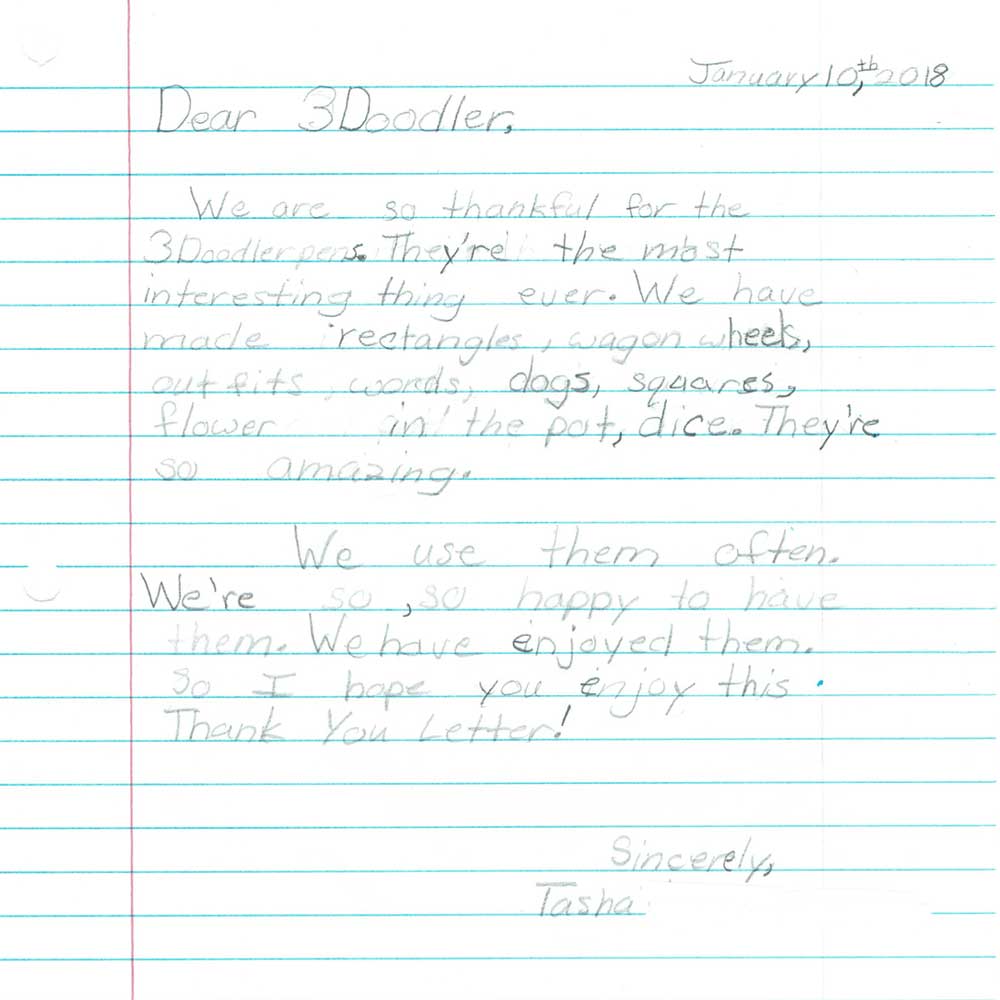 January 10th, 2018
Dear 3Doodler,
We are so thankful for the
3Doodler pens. They're the most
interesting thing ever. We have
made rectangles, wagon wheels,
outfits, words, dogs, squares,
flower in the pot, dice. They're
so amazing.
We use them often.
We're so, so happy to have
them. We have enjoyed them.
So I hope you enjoy this
Thank You Letter!
Sincerely,
Tasha